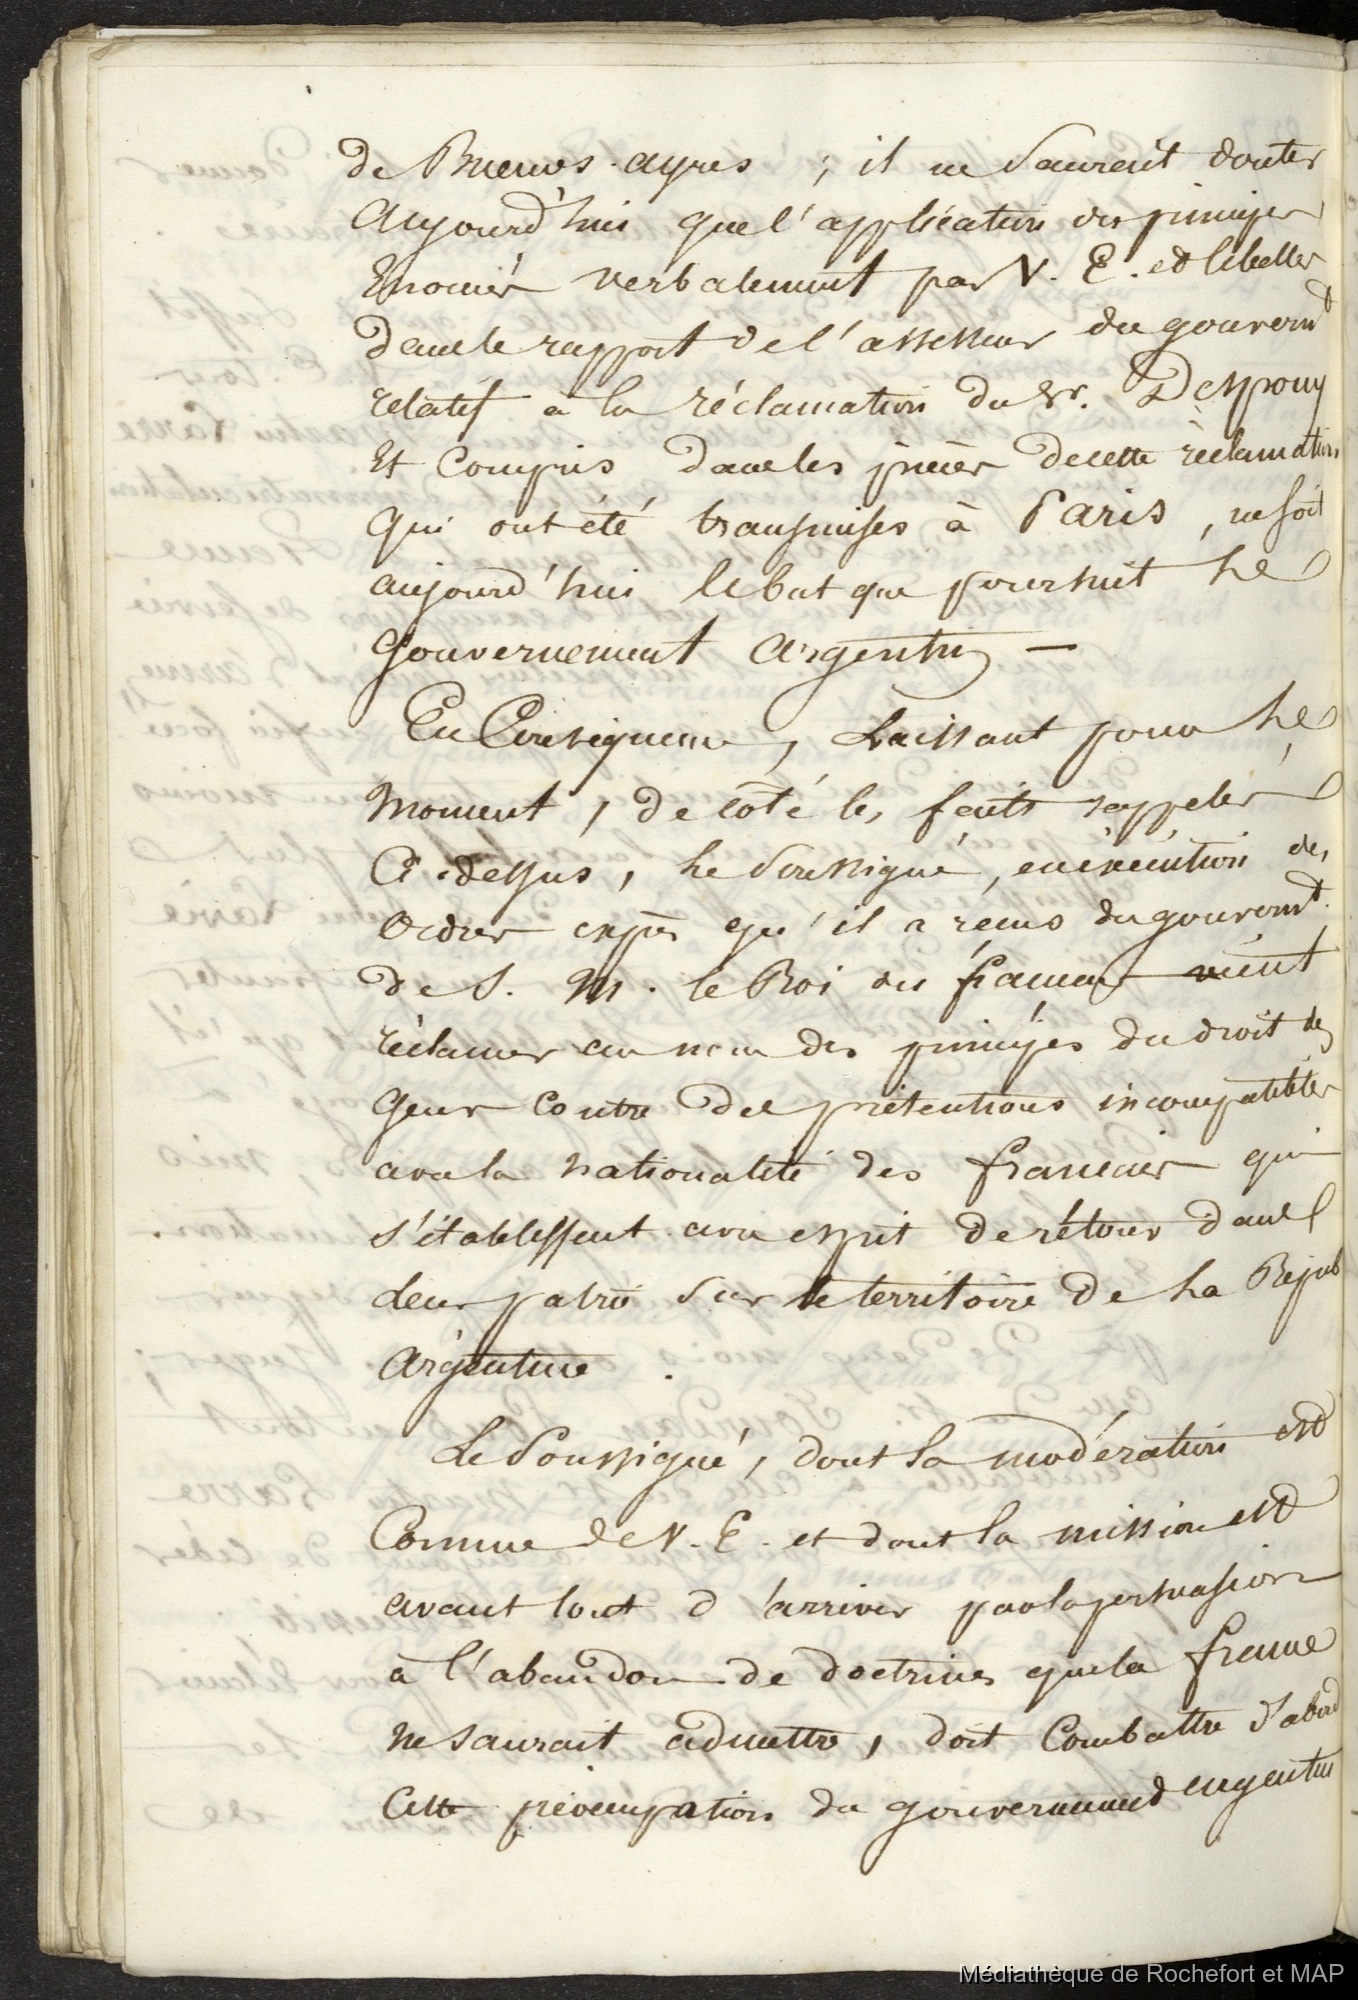 de Buenos-ayres ; il ne sauroit douter
Aujourd'hui que l'application des principes
Enoncés verbalement par V. E. et libellés
Dans le rapport de l'assesseur du gouvernt
relatif à la réclamation du Sr. Despouy
Et compris dans les pièces de cette réclamation
qui ont été transmises à Paris, ne soit
aujourd'hui le but que poursuit le
Gouvernement Argentin —
En Conséquence, Laissant pour le
Moment, de côté les faits rappelés
Ci-dessus, le Soussigné, en exécution des
Ordres exprès qu'il a reçus du gouvernt.
de S. M. le Roi des français vient
réclamer au nom des principes du droit des
Gens contre des prétentions incompatibles
avec la nationalité des français qui
s'établissent avec esprit de rétour dans
leur patrie sur le territoire de la Répub
Argentine .
Le Soussigné, dont la modération est
Connue de V. E. et dont la mission est
avant tout d'arriver par la persuasion
à l'abandon de doctrines que la france
ne saurait admettre, doit Combattre d'abord
Cette préoccupation du gouvernement argentin
Médiathèque de Rochefort et MAP